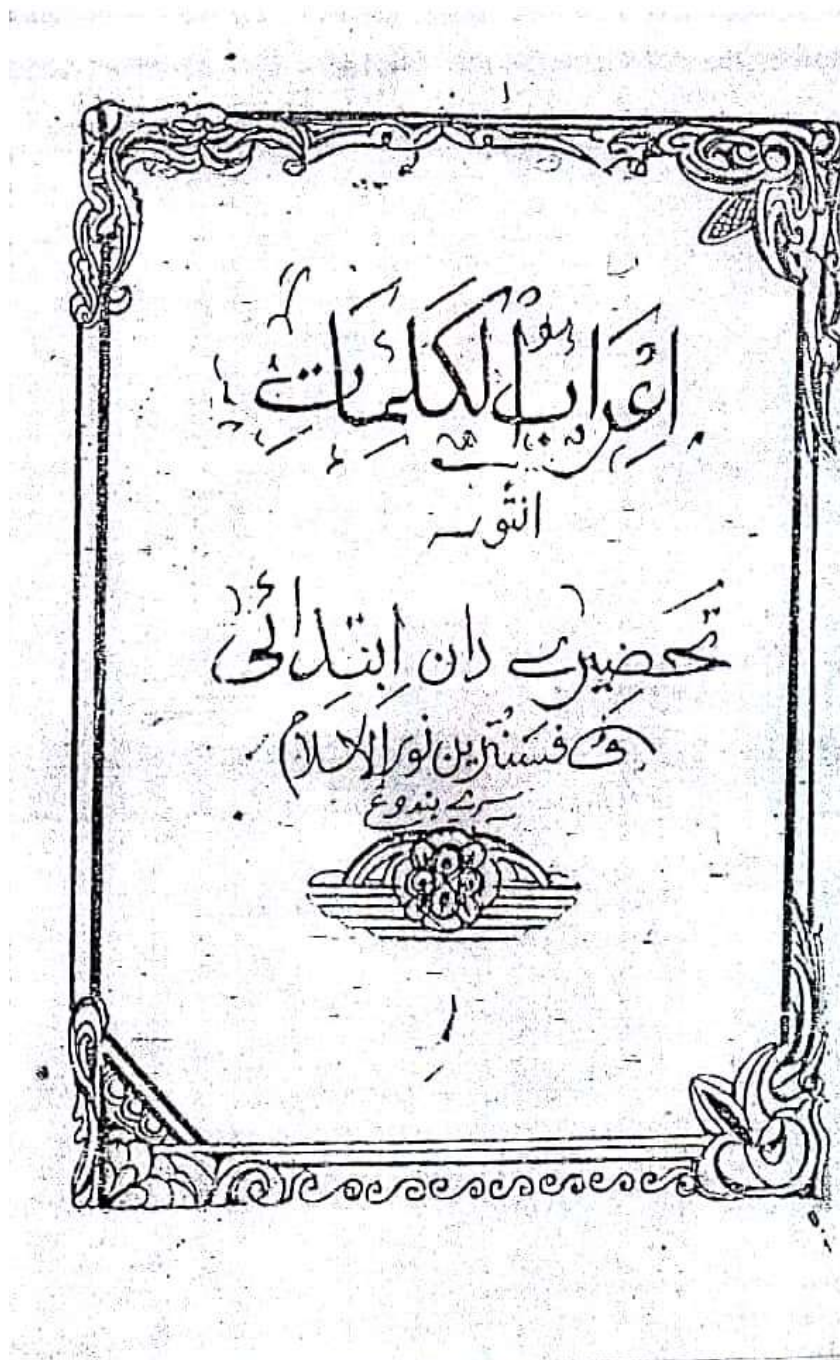 ١
إِعْرَابُ الْكَلِمَاتِ
انتوق
تَحْضِيرِي دان اِبْتِدَائِي
دڤسنترين نورالاسلام
سيري بندوڠ
١